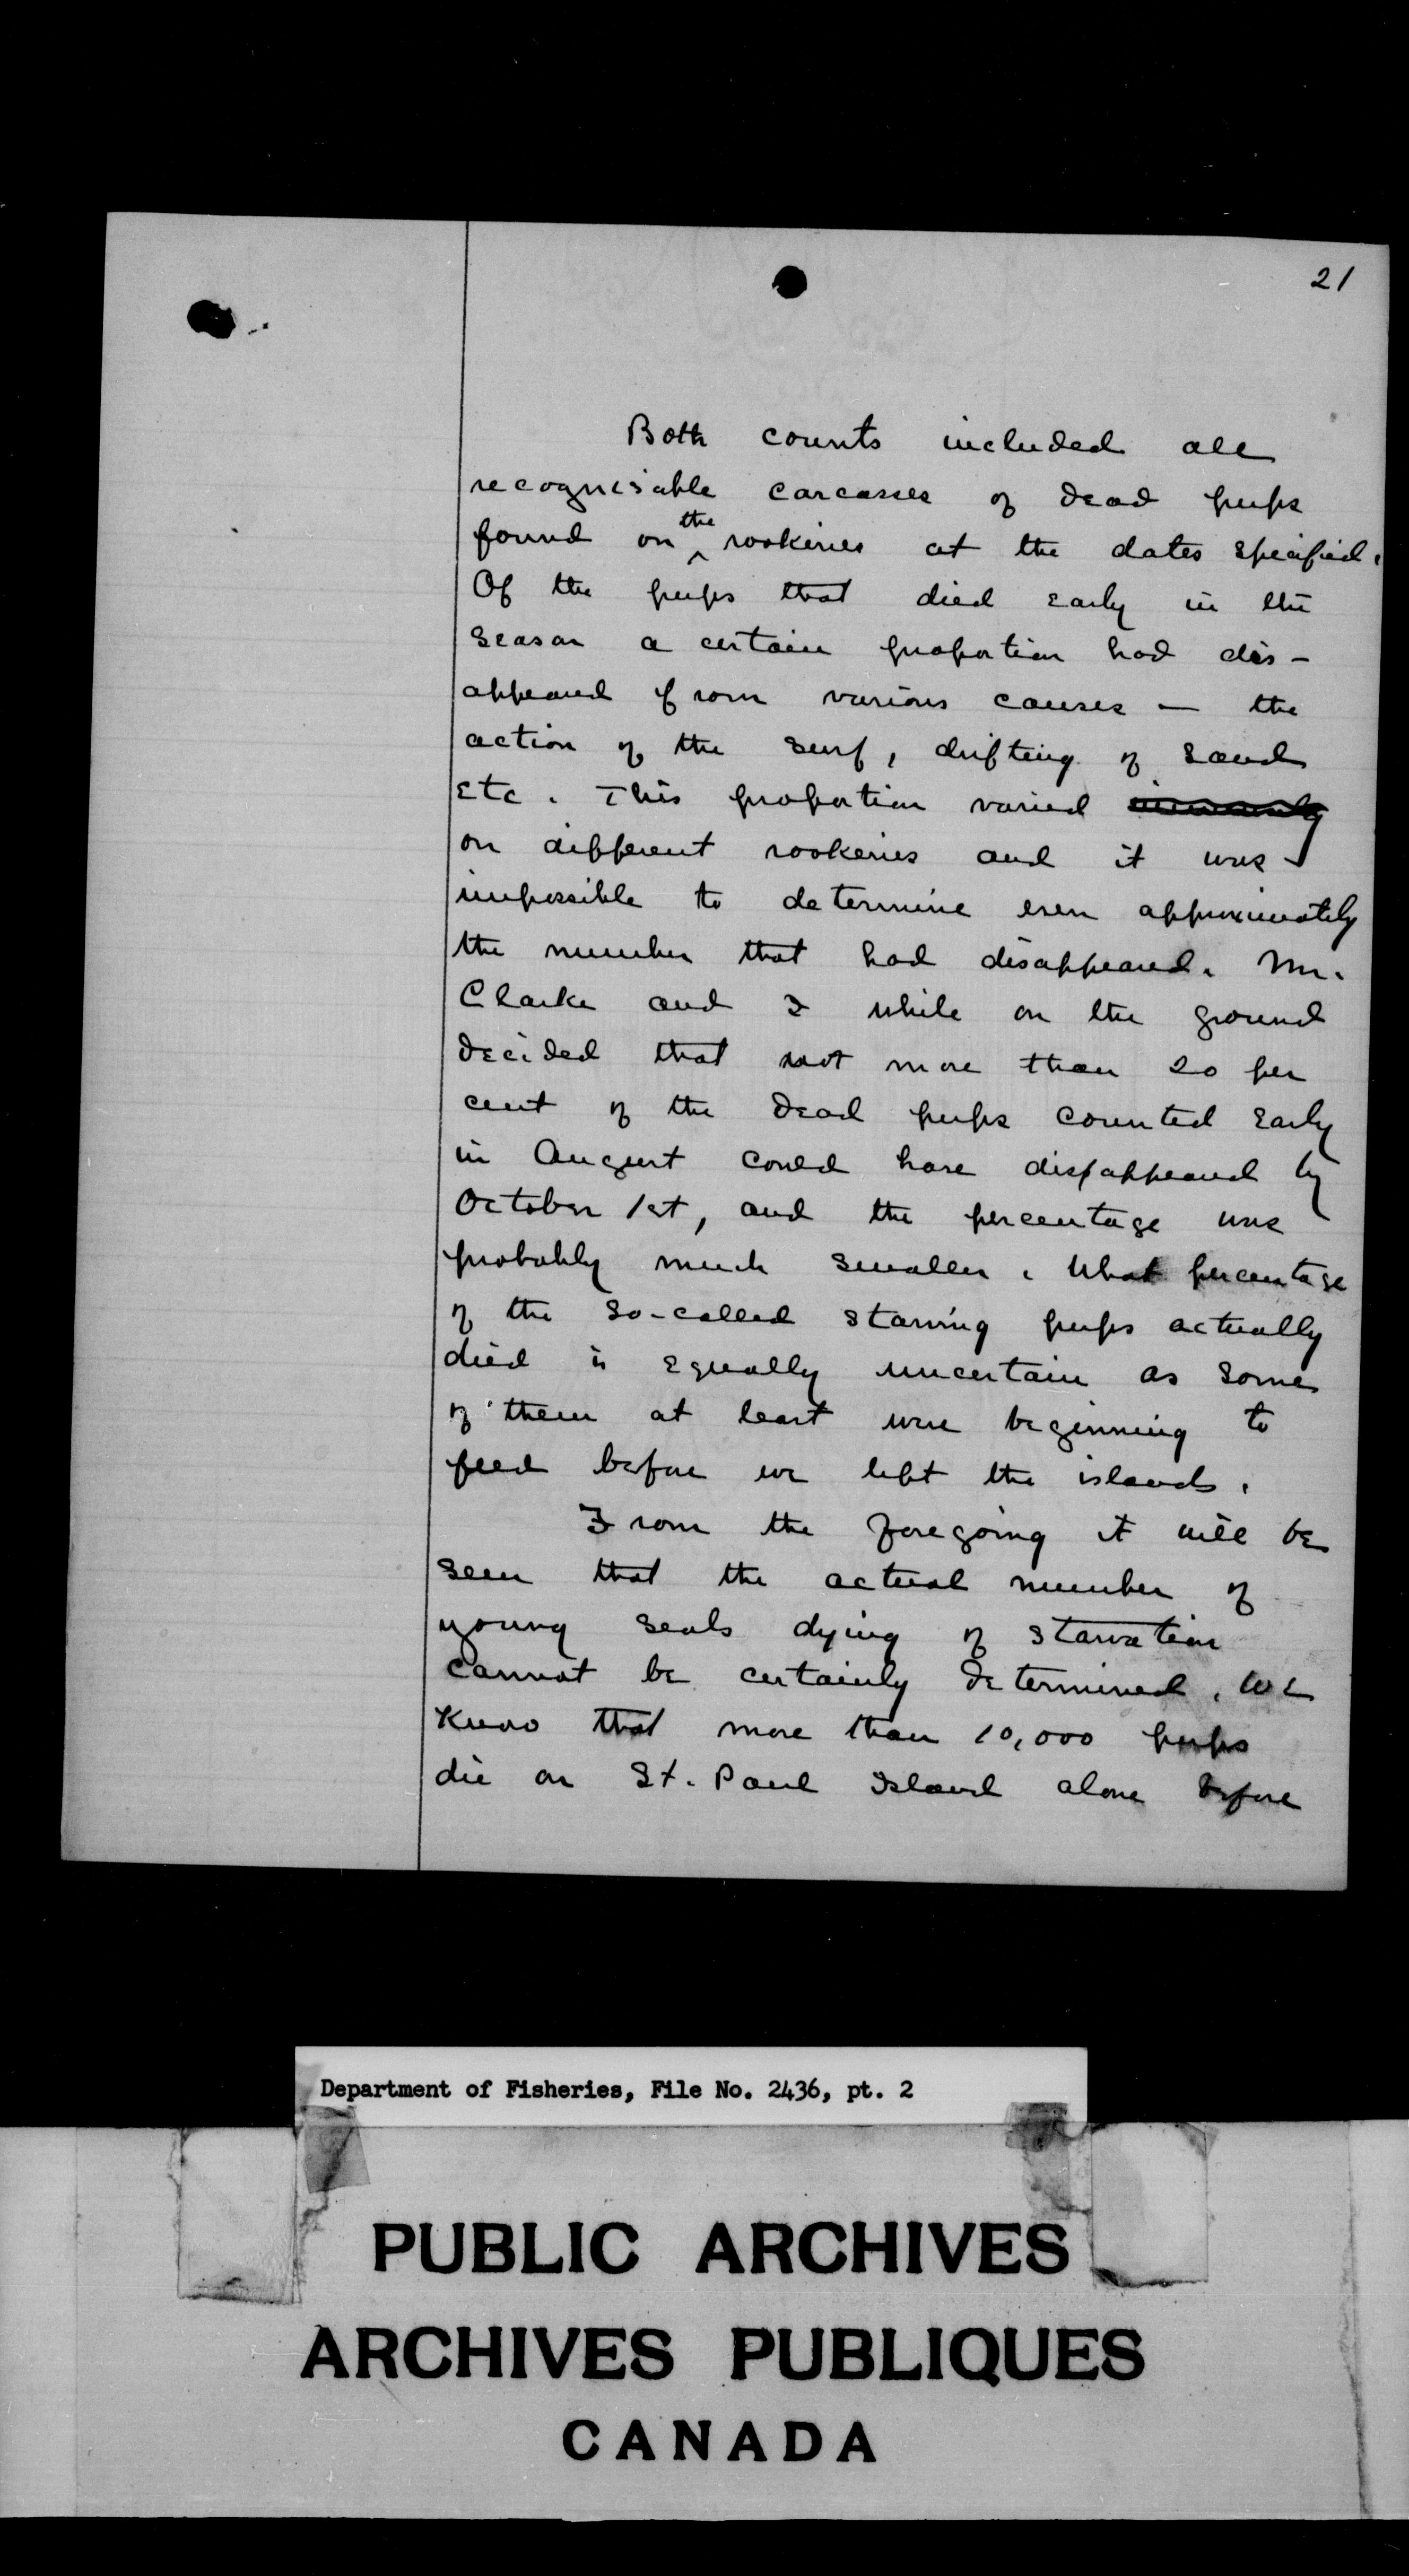 21
Both counts included all
recognisable carcasses of dead pups
found on the rookeries at the dates specified.
Of the pups that died early in the
season a certain proportion had dis-
appeared from various causes — the
action of the surf, drifting of sand
etc. This proportion varied
on different rookeries and it was
impossible to determine even approximately
the number that had disappeared. Mr.
Clarke and I while on the ground
decided that not more than 20 per
cent of the dead pups counted early
in August could have disappeared by
October 1st, and the percentage was
probably much smaller. What percentage
of the so-called starving pups actually
died is equally uncertain as some
of them at least were beginning to
feed before we left the islands.
From the foregoing it will be
seen that the actual number of
young seals dying of starvation
cannot be certainly determined. We
know that more than 10,000 pups
die on St. Paul Island alone before
Department of Fisheries, File No. 2436, pt. 2
PUBLIC ARCHIVES
ARCHIVES PUBLIQUES
CANADA